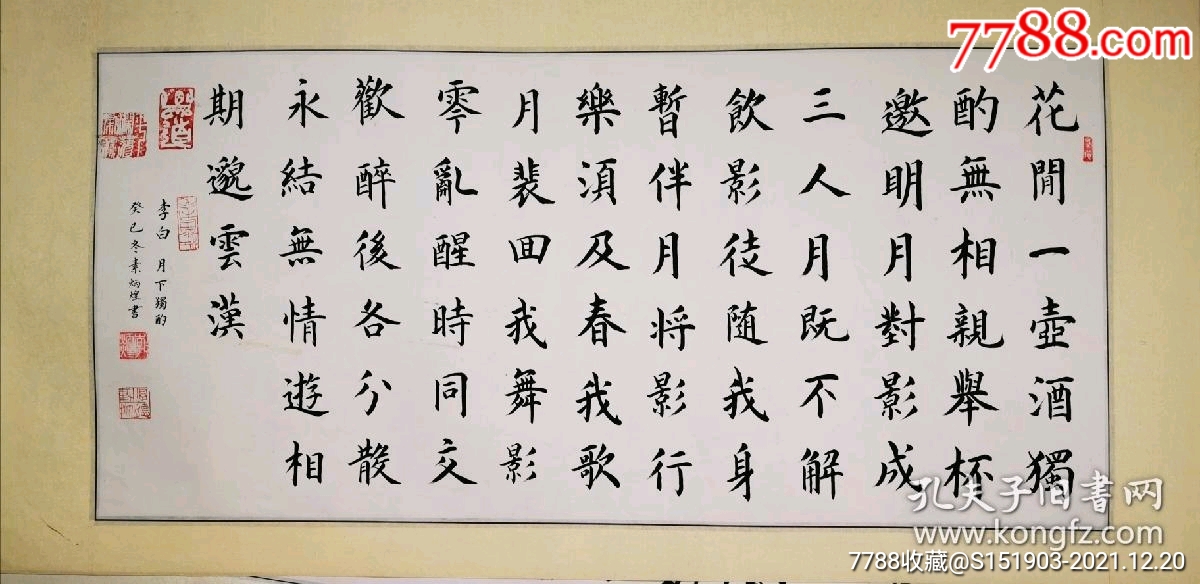 花間一壺酒獨
酌無相親舉杯
邀明月對影成
三人月既不解
飲影徒随我身
暫伴月將影行
樂須及春我歌
月裴回我舞影
零亂醒時同交
歡醉後各分散
永結無情遊相
期邈雲漢
李白 月下獨酌
癸巳冬素炳煌書
7788.com
孔夫子旧書网
www.kongfz.com
7788收藏@S151903-2021.12.20